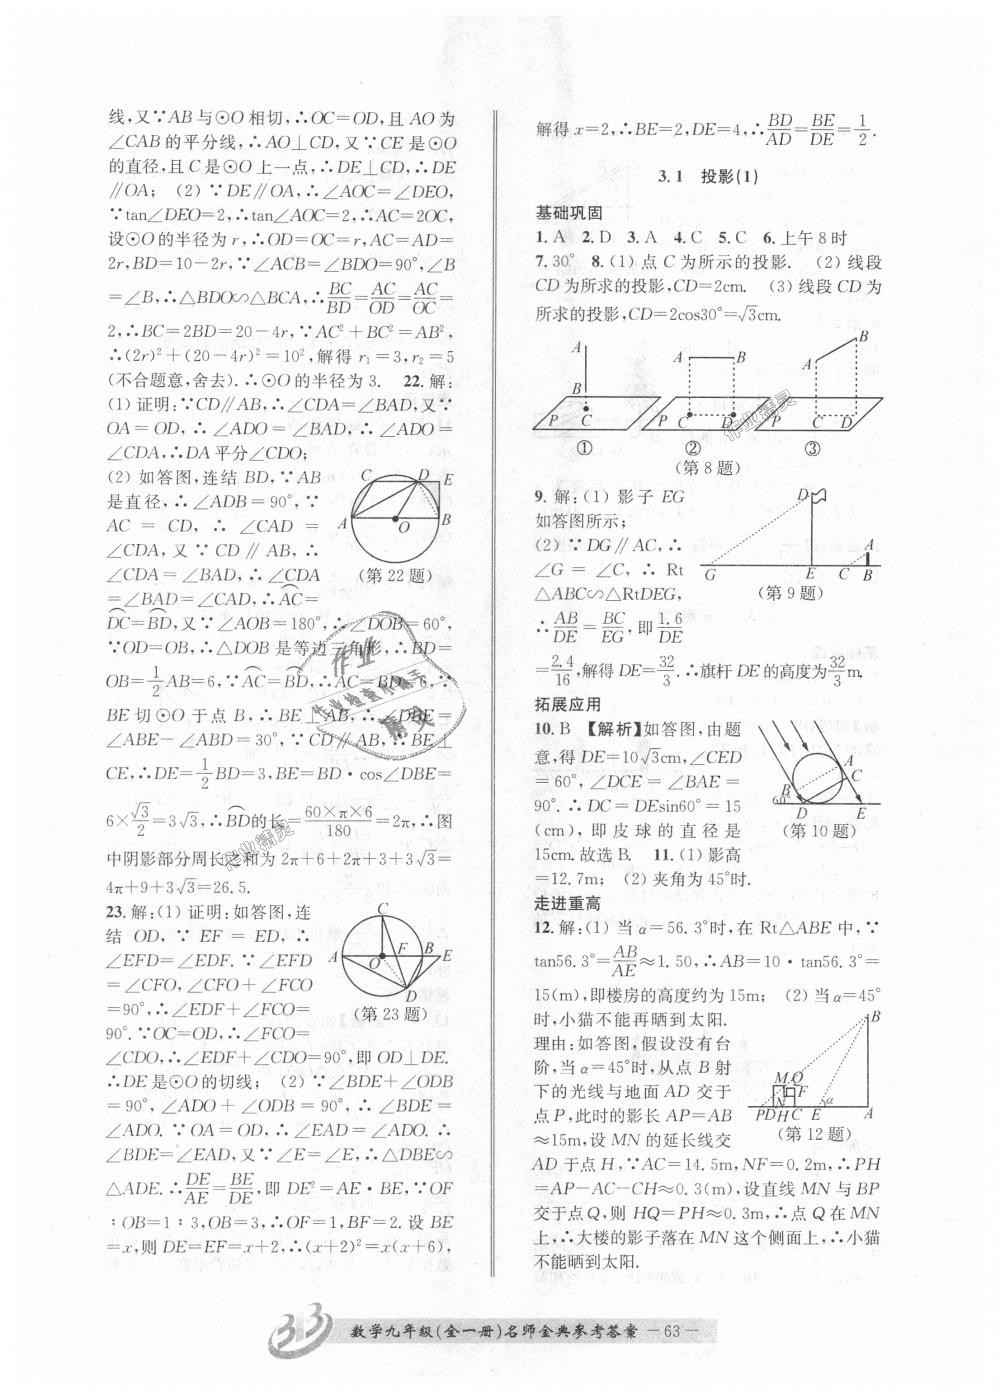 线,又∵AB与⊙O相切,∴OC=OD,且AO为
∠CAB的平分线,∴AO⊥CD,又∵CE是⊙O
的直径,且C是⊙O上一点,∴DE⊥CD,∴DE
∥OA; (2) ∵DE∥OA,∴∠AOC=∠DEO,
∵tan∠DEO=2,∴tan∠AOC=2,∴AC=2OC,
设⊙O的半径为r,∴OD=OC=r,AC=AD=
2r,BD=10-2r,∵∠ACB=∠BDO=90°,∠B
=∠B,∴△BDO∽△BCA,∴BC/BD=AC/OD=AC/OC=
2,∴BC=2BD=20-4r,∵AC²+BC²=AB²,
∴(2r)²+(20-4r)²=10²,解得r₁=3,r₂=5
(不合题意,舍去).∴⊙O的半径为3. 22.解:
(1)证明:∵CD∥AB,∴∠CDA=∠BAD,又∵
OA=OD,∴∠ADO=∠BAD,∴∠ADO=
∠CDA,∴DA平分∠CDO;
(2)如答图,连结BD,∵AB
是直径,∴∠ADB=90°,∵
AC=CD,∴∠CAD=
∠CDA,又∵CD∥AB,∴
∠CDA=∠BAD,∴∠CDA
=∠BAD=∠CAD,∴AC=
DC=BD,又∵∠AOB=180°,∴∠DOB=60°,
∵OD=OB,∴△DOB是等边三角形,∴BD=
OB=1/2AB=6,∵AC=BD,∴AC=BD=6,∵
BE切⊙O于点B,∴BE⊥AB,∴∠DBE=
∠ABE-∠ABD=30°,∵CD∥AB,∴BE⊥
CE,∴DE=1/2BD=3,BE=BD·cos∠DBE=
6×√3/2=3√3,∴BD的长=60×π×6/180=2π,∴图
中阴影部分周长之和为2π+6+2π+3+3√3=
4π+9+3√3=26.5.
A B C D E O
(第22题)
23.解:(1)证明:如答图,连
结OD,∵EF=ED,∴
∠EFD=∠EDF.∵∠EFD
=∠CFO,∠CFO+∠FCO
=90°,∴∠EDF+∠FCO=
90°.∵OC=OD,∴∠FCO=
∠CDO,∴∠EDF+∠CDO=90°,即OD⊥DE.
∴DE是⊙O的切线; (2)∵∠BDE+∠ODB
=90°,∠ADO+∠ODB=90°,∴∠BDE=
∠ADO.∵OA=OD,∴∠EAD=∠ADO.∴
∠BDE=∠EAD,又∵∠E=∠E,∴△DBE∽
△ADE.∴DE/AE=BE/DE,即DE²=AE·BE,∵OF
:OB=1:3,OB=3,∴OF=1,BF=2.设BE
=x,则DE=EF=x+2,∴(x+2)²=x(x+6),
A B C D E F O
(第23题)
解得x=2,∴BE=2,DE=4,∴BD/AD=BE/DE=1/2.
3.1 投影(1)
基础巩固
1.A 2.D 3.A 4.C 5.C 6.上午8时
7.30° 8.(1)点C为所示的投影. (2)线段
CD为所求的投影,CD=2cm. (3)线段CD为
所求的投影,CD=2cos30°=√3cm.
A B P C ①
A B P C D ②
A B P C D ③
(第8题)
9.解:(1)影子EG
如答图所示;
(2)∵DG∥AC,∴
∠G=∠C,∴Rt
△ABC∽△RtDEG,
∴AB/DE=BC/EG,即1.6/DE
=2.4/16,解得DE=32/3.∴旗杆DE的高度为32/3m.
D A G E C B
(第9题)
拓展应用
10.B 【解析】如答图,由题
意,得DE=10√3cm,∠CED
=60°,∠DCE=∠BAE=
90°.∴DC=DEsin60°=15
(cm),即皮球的直径是
15cm.故选B. 11.(1)影高
=12.7m; (2)夹角为45°时.
A C B 60° D E
(第10题)
走进重高
12.解:(1)当α=56.3°时,在Rt△ABE中,∵
tan56.3°=AB/AE≈1.50,∴AB=10·tan56.3°=
15(m),即楼房的高度约为15m; (2)当α=45°
时,小猫不能再晒到太阳.
理由:如答图,假设没有台
阶,当α=45°时,从点B射
下的光线与地面AD交于
点P,此时的影长AP=AB
≈15m,设MN的延长线交
AD于点H,∵AC=14.5m,NF=0.2m,∴PH
=AP-AC-CH≈0.3(m),设直线MN与BP
交于点Q,则HQ=PH≈0.3m,∴点Q在MN
上,∴大楼的影子落在MN这个侧面上,∴小猫
不能晒到太阳.
B M Q N F α P D H C E A
(第12题)
作业
作业检查精灵
作业精灵
作业精灵
数学九年级(全一册)名师金典参考答案 —63—